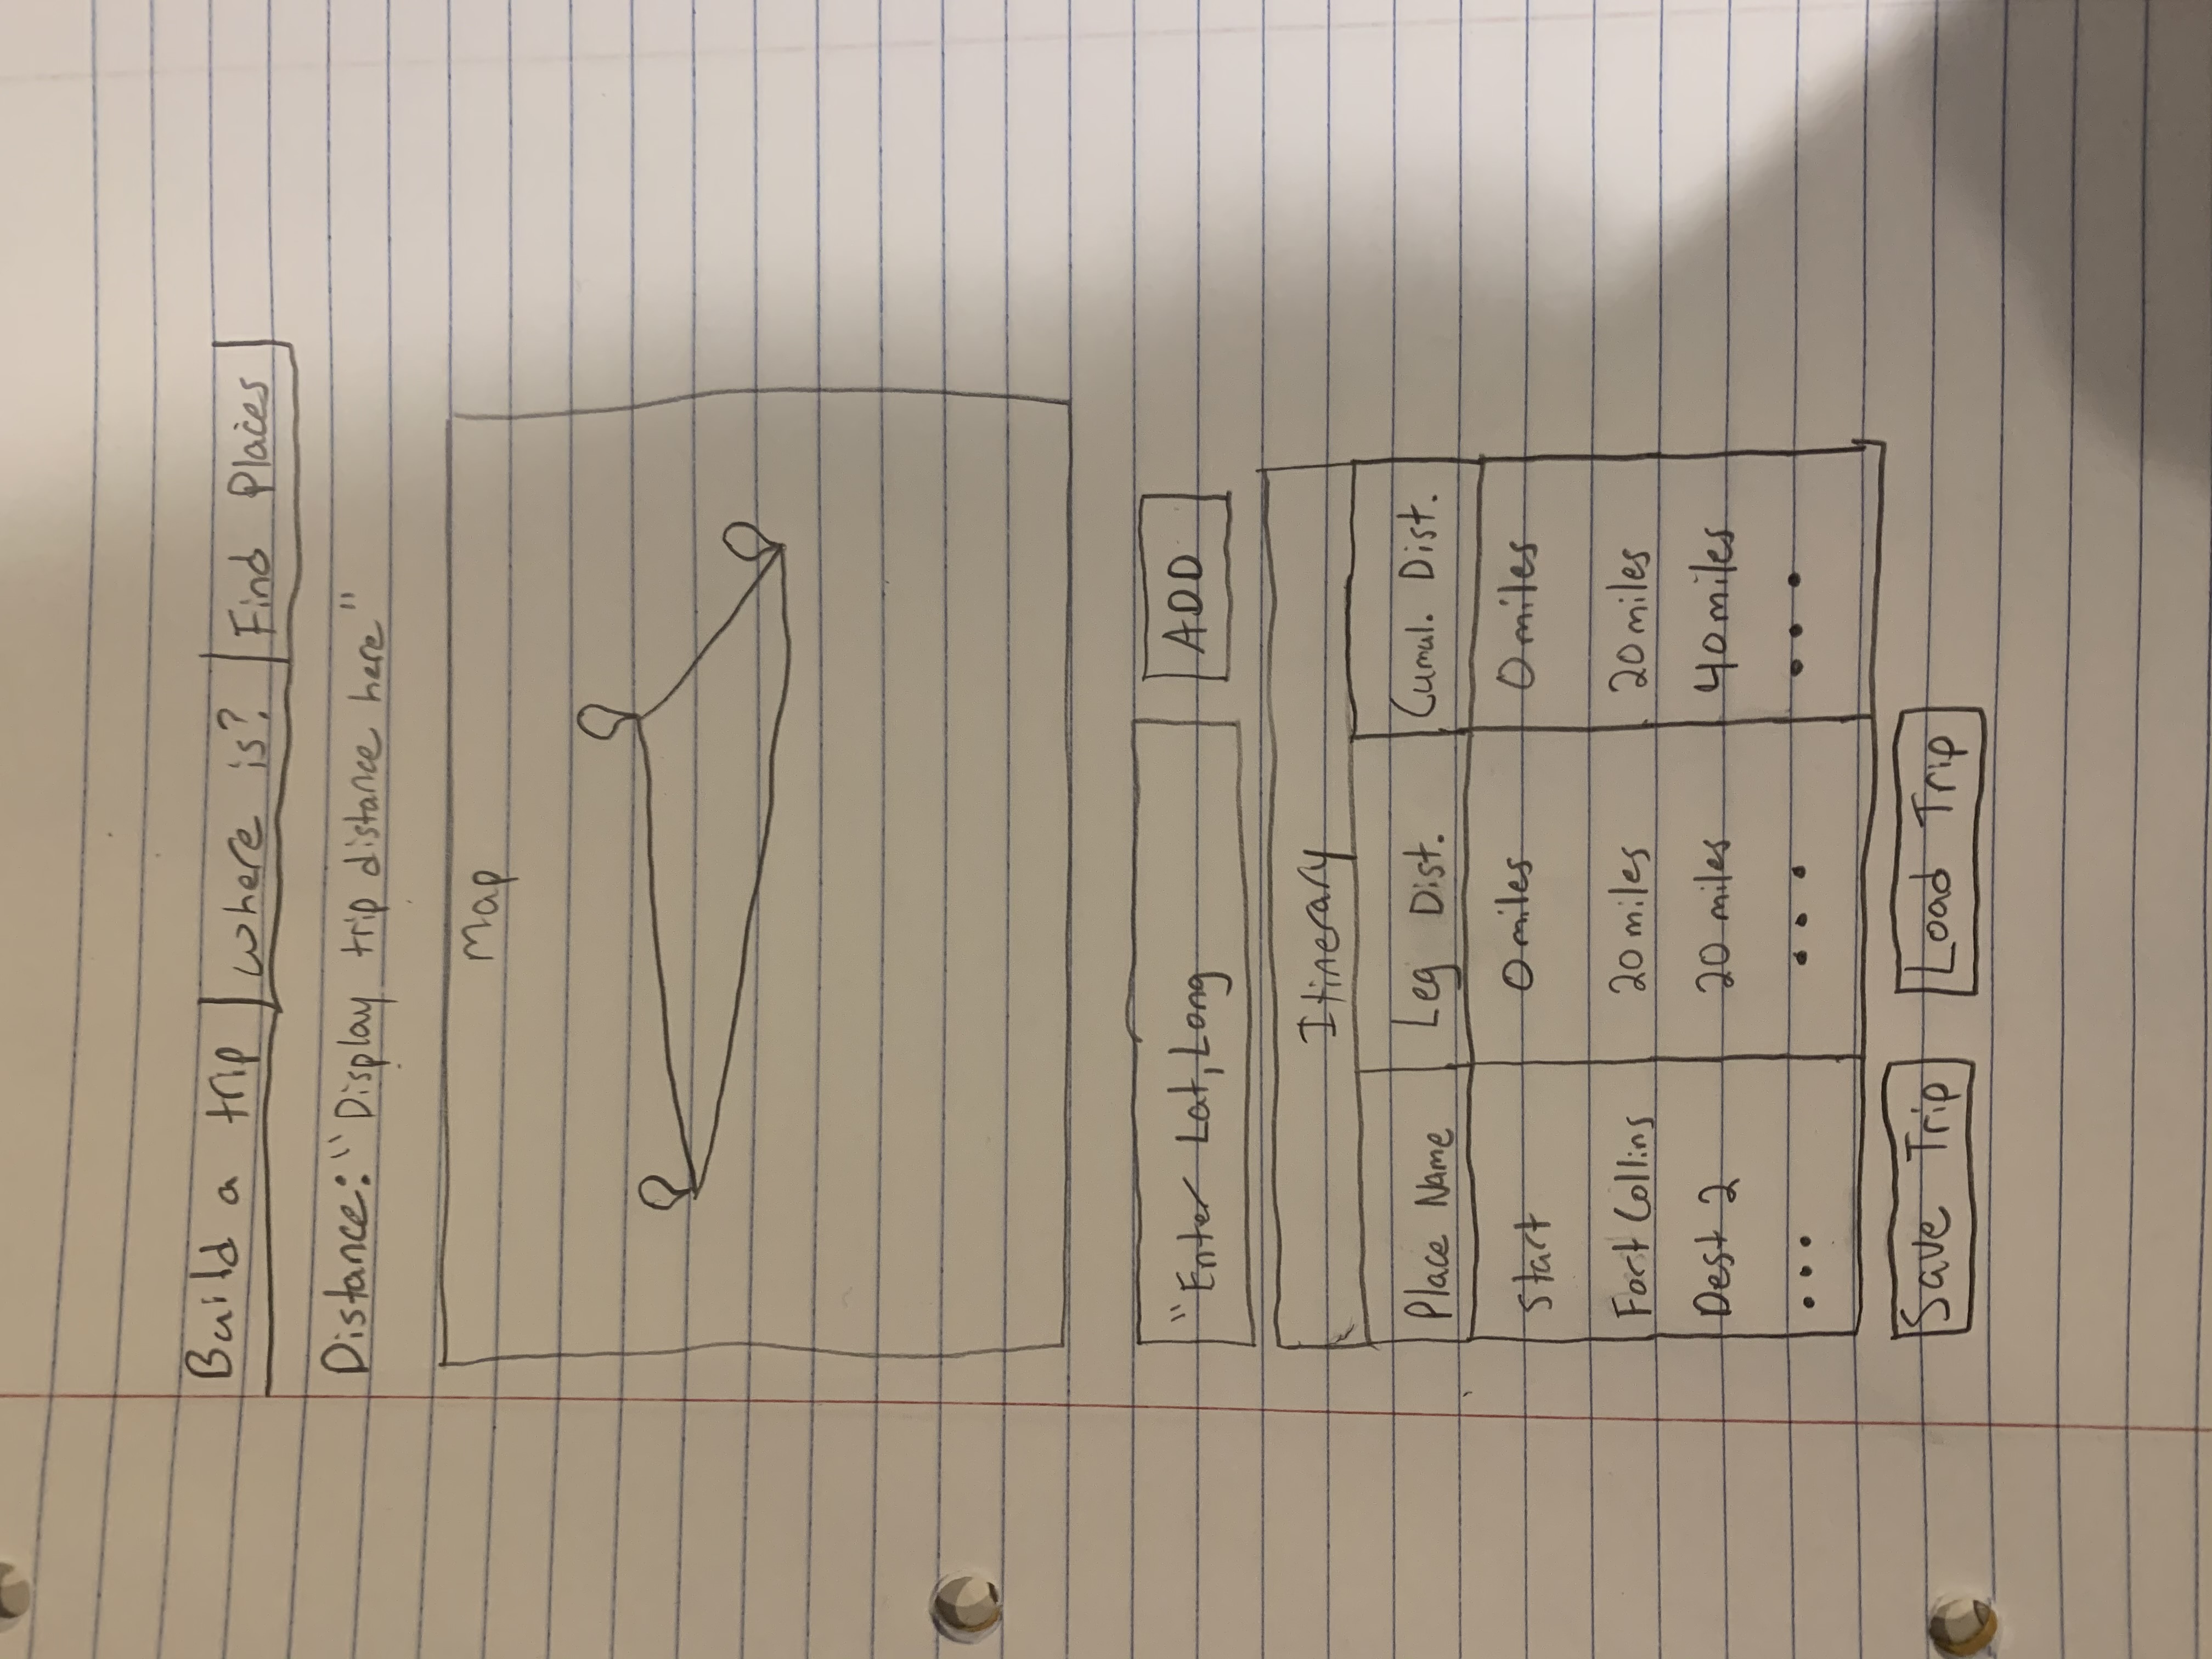 Build a trip | where is? | Find Places
Distance: "Display trip distance here"
Map
"Enter Lat, Long
ADD
Itinerary
Place Name Leg Dist. Cumul. Dist.
Start 0 miles 0 miles
Fort Collins 20 miles 20 miles
Dest 2 20 miles 40 miles
... ... ...
Save Trip Load Trip